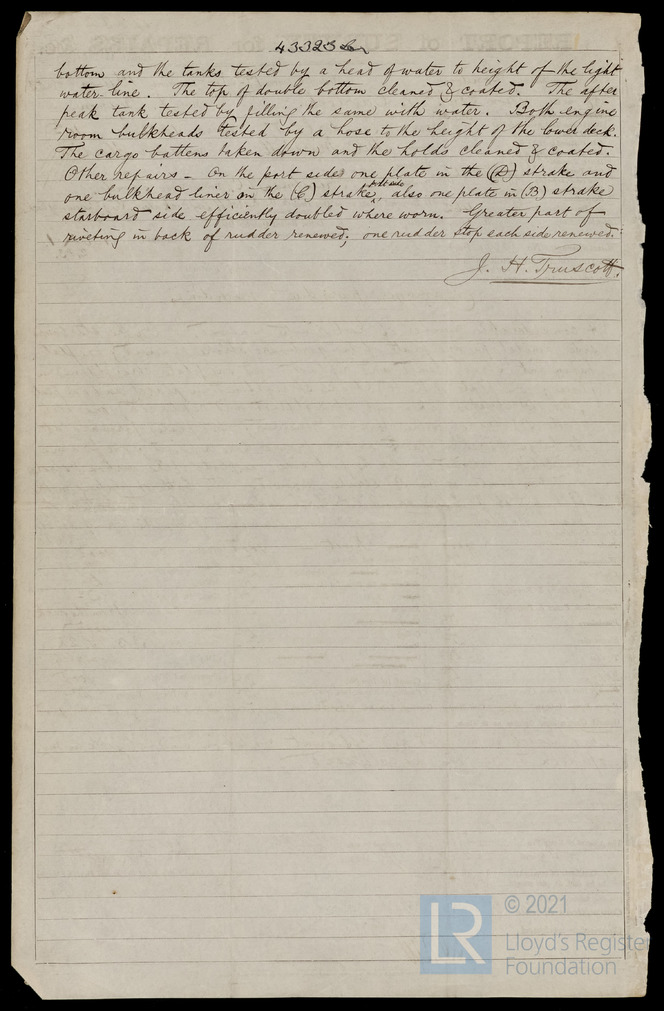 43323
bottom and the tanks tested by a head of water to height of the light
water-line. The top of double bottom cleaned & coated. The after
peak tank tested by filling the same with water. Both engine
room bulkheads tested by a hose to the height of the lower deck.
The cargo battens taken down and the holds cleaned & coated.
Other repairs - On the port side one plate in the (D) strake and
one bulkhead liner in the (C) strake, also one plate in (B) strake
starboard side efficiently doubled where worn. Greater part of
riveting in back of rudder renewed; one rudder stop each side renewed.
J. H. Truscott.
LR
© 2021
Lloyd's Register
Foundation